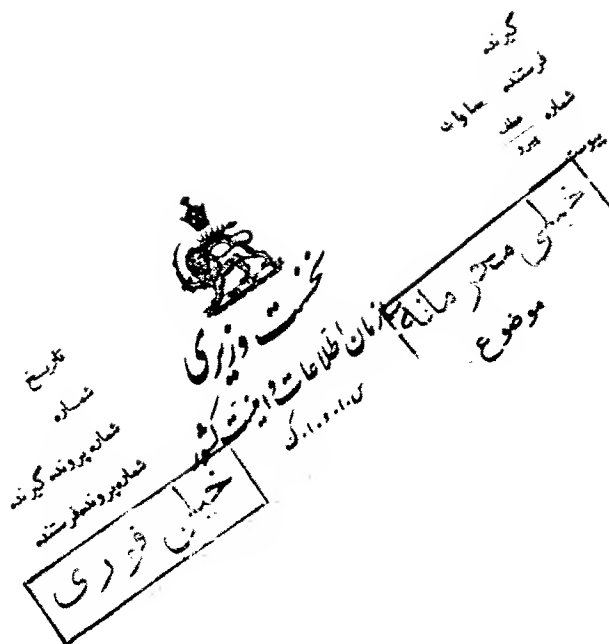 گیرنده
فرستنده ساواک
شماره عطف پیرو
پیوست
خیلی محرمانه
موضوع
نخست وزیری
سازمان اطلاعات و امنیت کشور
س.ا.و.ا.ک
تاریخ
شماره
شماره پرونده گیرنده
شماره پرونده فرستنده
خیلی فوری